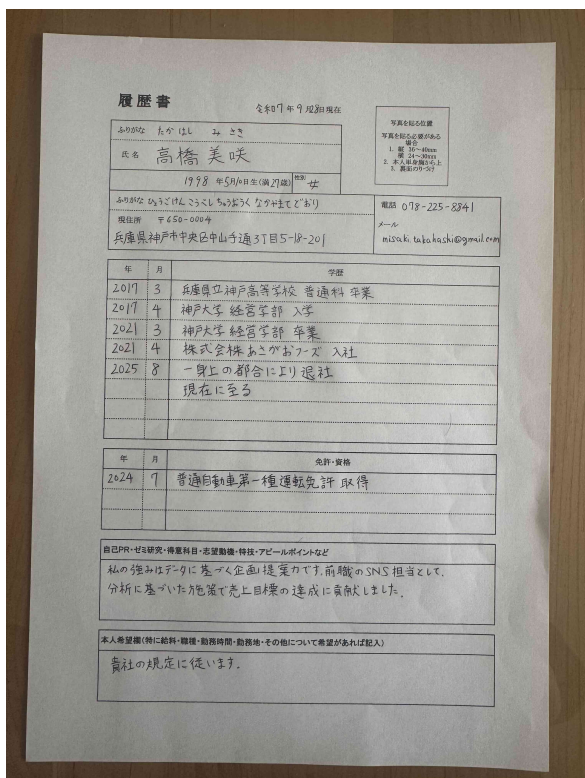 履歴書
令和7年9月28日現在
写真を貼る位置
写真を貼る必要がある
場合
1. 縦 36～40mm
横 24～30mm
2. 本人単身胸から上
3. 裏面のりづけ
ふりがな たかはし みさき
氏名 高橋美咲
1998年5月10日生(満27歳) 性別 女
ふりがな ひょうごけん こうべし ちゅうおうく なかやまてどおり
現住所 〒650-0004
兵庫県神戸市中央区中山手通3丁目5-18-201
電話 078-225-8841
メール
misaki.takahashi@gmail.com
年 月 学歴
2017 3 兵庫県立神戸高等学校 普通科 卒業
2017 4 神戸大学 経営学部 入学
2021 3 神戸大学 経営学部 卒業
2021 4 株式会社株あさがおフーズ 入社
2025 8 一身上の都合により退社
現在に至る
年 月 免許・資格
2024 7 普通自動車第一種運転免許 取得
自己PR・ゼミ研究・得意科目・志望動機・特技・アピールポイントなど
私の強みはデータに基づく企画提案力です。前職のSNS担当として、
分析に基づいた施策で売上目標の達成に貢献しました。
本人希望欄(特に給料・職種・勤務時間・勤務地・その他について希望があれば記入)
貴社の規定に従います。